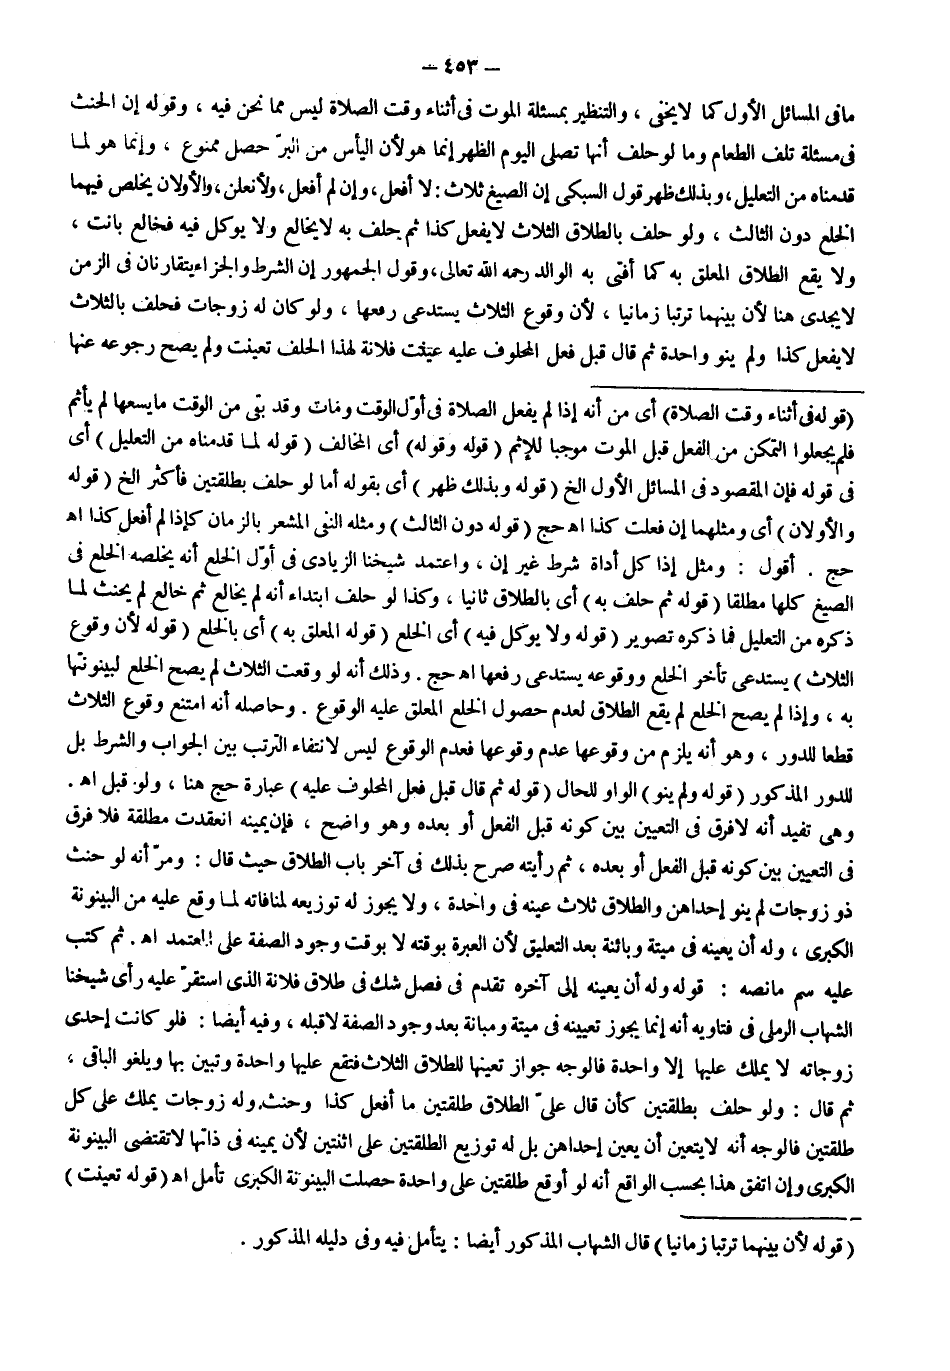 – ٤٥٣ –
مافى المسائل الأول كما لايخفى ، والتنظير بمسئلة الموت فى أثناء وقت الصلاة ليس مما نحن فيه ، وقوله إن الحنث
فى مسئلة تلف الطعام وما لو حلف أنها تصلى اليوم الظهر إنما هو لأن اليأس من البرّ حصل ممنوع ، وإنما هو لما
قدمناه من التعليل ، وبذلك ظهر قول السبكى إن الصيغ ثلاث : لا أفعل ، وإن لم أفعل ، ولأنعلن ، والأولان يخلص فيهما
الخلع دون الثالث ، ولو حلف بالطلاق الثلاث لايفعل كذا ثم حلف به لايخالع ولا يوكل فيه فخالع بانت ،
ولا يقع الطلاق المعلق به كما أفتى به الوالد رحمه الله تعالى ، وقول الجمهور إن الشرط والجزاء يتقارنان فى الزمن
لايجدى هنا لأن بينهما ترتبا زمانيا ، لأن وقوع الثلاث يستدعى رفعها ، ولو كان له زوجات فحلف بالثلاث
لايفعل كذا ولم ينو واحدة ثم قال قبل فعل المحلوف عليه عينت فلانة لهذا الحلف تعينت ولم يصح رجوعه عنها
(قوله فى أثناء وقت الصلاة) أى من أنه إذا لم يفعل الصلاة فى أوّل الوقت ومات وقد بقى من الوقت مايسعها لم يأثم
فلم يجعلوا التمكن من الفعل قبل الموت موجبا للإثم ( قوله وقوله) أى المخالف ( قوله لما قدمناه من التعليل ) أى
فى قوله فإن المقصود فى المسائل الأول الخ ( قوله وبذلك ظهر ) أى بقوله أما لو حلف بطلقتين فأكثر الخ ( قوله
والأولان ) أى ومثلهما إن فعلت كذا اه حج ( قوله دون الثالث ) ومثله النفى المشعر بالزمان كإذا لم أفعل كذا اه
حج . أقول : ومثل إذا كل أداة شرط غير إن ، واعتمد شيخنا الزيادى فى أوّل الخلع أنه يخلصه الخلع فى
الصيغ كلها مطلقا ( قوله ثم حلف به ) أى بالطلاق ثانيا ، وكذا لو حلف ابتداء أنه لم يخالع ثم خالع لم يحنث لما
ذكره من التعليل فما ذكره تصوير ( قوله ولا يوكل فيه ) أى الخلع ( قوله المعلق به ) أى بالخلع ( قوله لأن وقوع
الثلاث ) يستدعى تأخر الخلع ووقوعه يستدعى رفعها اه حج . وذلك أنه لو وقعت الثلاث لم يصح الخلع لبينونتها
به ، وإذا لم يصح الخلع لم يقع الطلاق لعدم حصول الخلع المعلق عليه الوقوع . وحاصله أنه امتنع وقوع الثلاث
قطعا للدور ، وهو أنه يلزم من وقوعها عدم وقوعها فعدم الوقوع ليس لانتفاء الترتب بين الجواب والشرط بل
للدور المذكور ( قوله ولم ينو ) الواو للحال ( قوله ثم قال قبل فعل المحلوف عليه ) عبارة حج هنا ، ولو قبل اه .
وهى تفيد أنه لافرق فى التعيين بين كونه قبل الفعل أو بعده وهو واضح ، فإن يمينه انعقدت مطلقة فلا فرق
فى التعيين بين كونه قبل الفعل أو بعده ، ثم رأيته صرح بذلك فى آخر باب الطلاق حيث قال : ومرّ أنه لو حنث
ذو زوجات لم ينو إحداهن والطلاق ثلاث عينه فى واحدة ، ولا يجوز له توزيعه لمنافاته لما وقع عليه من البينونة
الكبرى ، وله أن يعينه فى ميتة وبائنة بعد التعليق لأن العبرة بوقته لا بوقت وجود الصفة على المعتمد اه . ثم كتب
عليه سم مانصه : قوله وله أن يعينه إلى آخره تقدم فى فصل شك فى طلاق فلانة الذى استقرّ عليه رأى شيخنا
الشهاب الرملى فى فتاويه أنه إنما يجوز تعيينه فى ميتة ومبانة بعد وجود الصفة لاقبله ، وفيه أيضا : فلو كانت إحدى
زوجاته لا يملك عليها إلا واحدة فالوجه جواز تعينها للطلاق الثلاث فتقع عليها واحدة وتبين بها ويلغو الباقى ،
ثم قال : ولو حلف بطلقتين كأن قال علىّ الطلاق طلقتين ما أفعل كذا وحنث وله زوجات يملك على كل
طلقتين فالوجه أنه لايتعين أن يعين إحداهن بل له توزيع الطلقتين على اثنتين لأن يمينه فى ذاتها لاتقتضى البينونة
الكبرى وإن اتفق هذا بحسب الواقع أنه لو أوقع طلقتين على واحدة حصلت البينونة الكبرى تأمل اه ( قوله تعينت )
( قوله لأن بينهما ترتبا زمانيا ) قال الشهاب المذكور أيضا : يتأمل فيه وفى دليله المذكور .